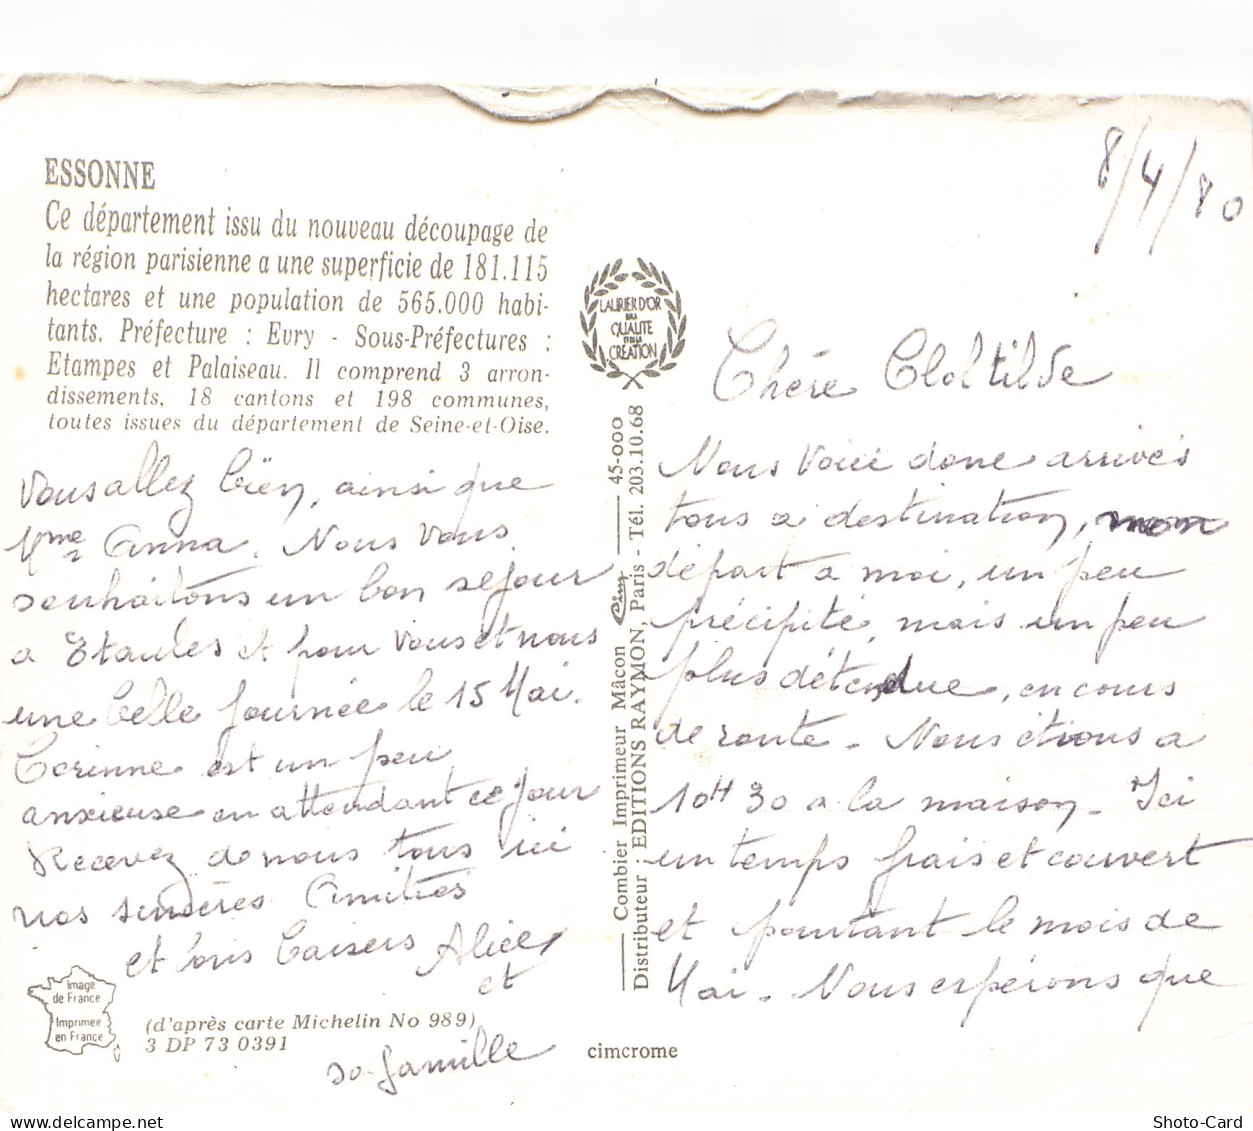 ESSONNE
Ce département issu du nouveau découpage de
la région parisienne a une superficie de 181.115
hectares et une population de 565.000 habi-
tants. Préfecture : Evry - Sous-Préfectures :
Etampes et Palaiseau. Il comprend 3 arron-
dissements, 18 cantons et 198 communes,
toutes issues du département de Seine-et-Oise.
LAURIER D'OR
DE LA
QUALITE
ET DE LA
CREATION
Combier Imprimeur Mâcon Cim 45-000
Distributeur : EDITIONS RAYMON, Paris - Tél. 203.10.68
8/4/80
Chére Cloltilde
Nous voici donc arrivés
tous a destination, mon
départ a moi, un peu
précipité, mais un peu
plus détendue, en cours
de route. Nous étions a
10H30 a la maison. Ici
un temps frais et couvert
et pourtant le mois de
Mai. Nous espérons que
Vous allez bien, ainsi que
Mme Anna. Nous vous
souhaitons un bon séjour
a Etaules et pour vous et nous
une belle journée le 15 Mai.
Corinne est un peu
anxieuse en attendant ce jour
Recevez de nous tous ici
nos sincères Amitiés
et bons baisers Alice
et
sa famille
Image
de France
Imprimée
en France
(d'après carte Michelin No 989)
3 DP 73 0391
cimcrome
www.delcampe.net
Shoto-Card